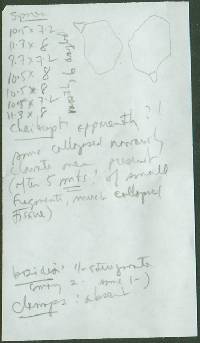 Spores
10.5 x 7.2
11.3 x 8
9.7 x 7.2
10.5 x 8
10.5 x 8
10.5 x 7.2
11.3 x 8
apparently ?!
some collapsed narrowly
clavate men present
(after 5 mts! of small
fragments, much collapsed
tissue)
basidia:
many 2- some 1-)
clamps: absent